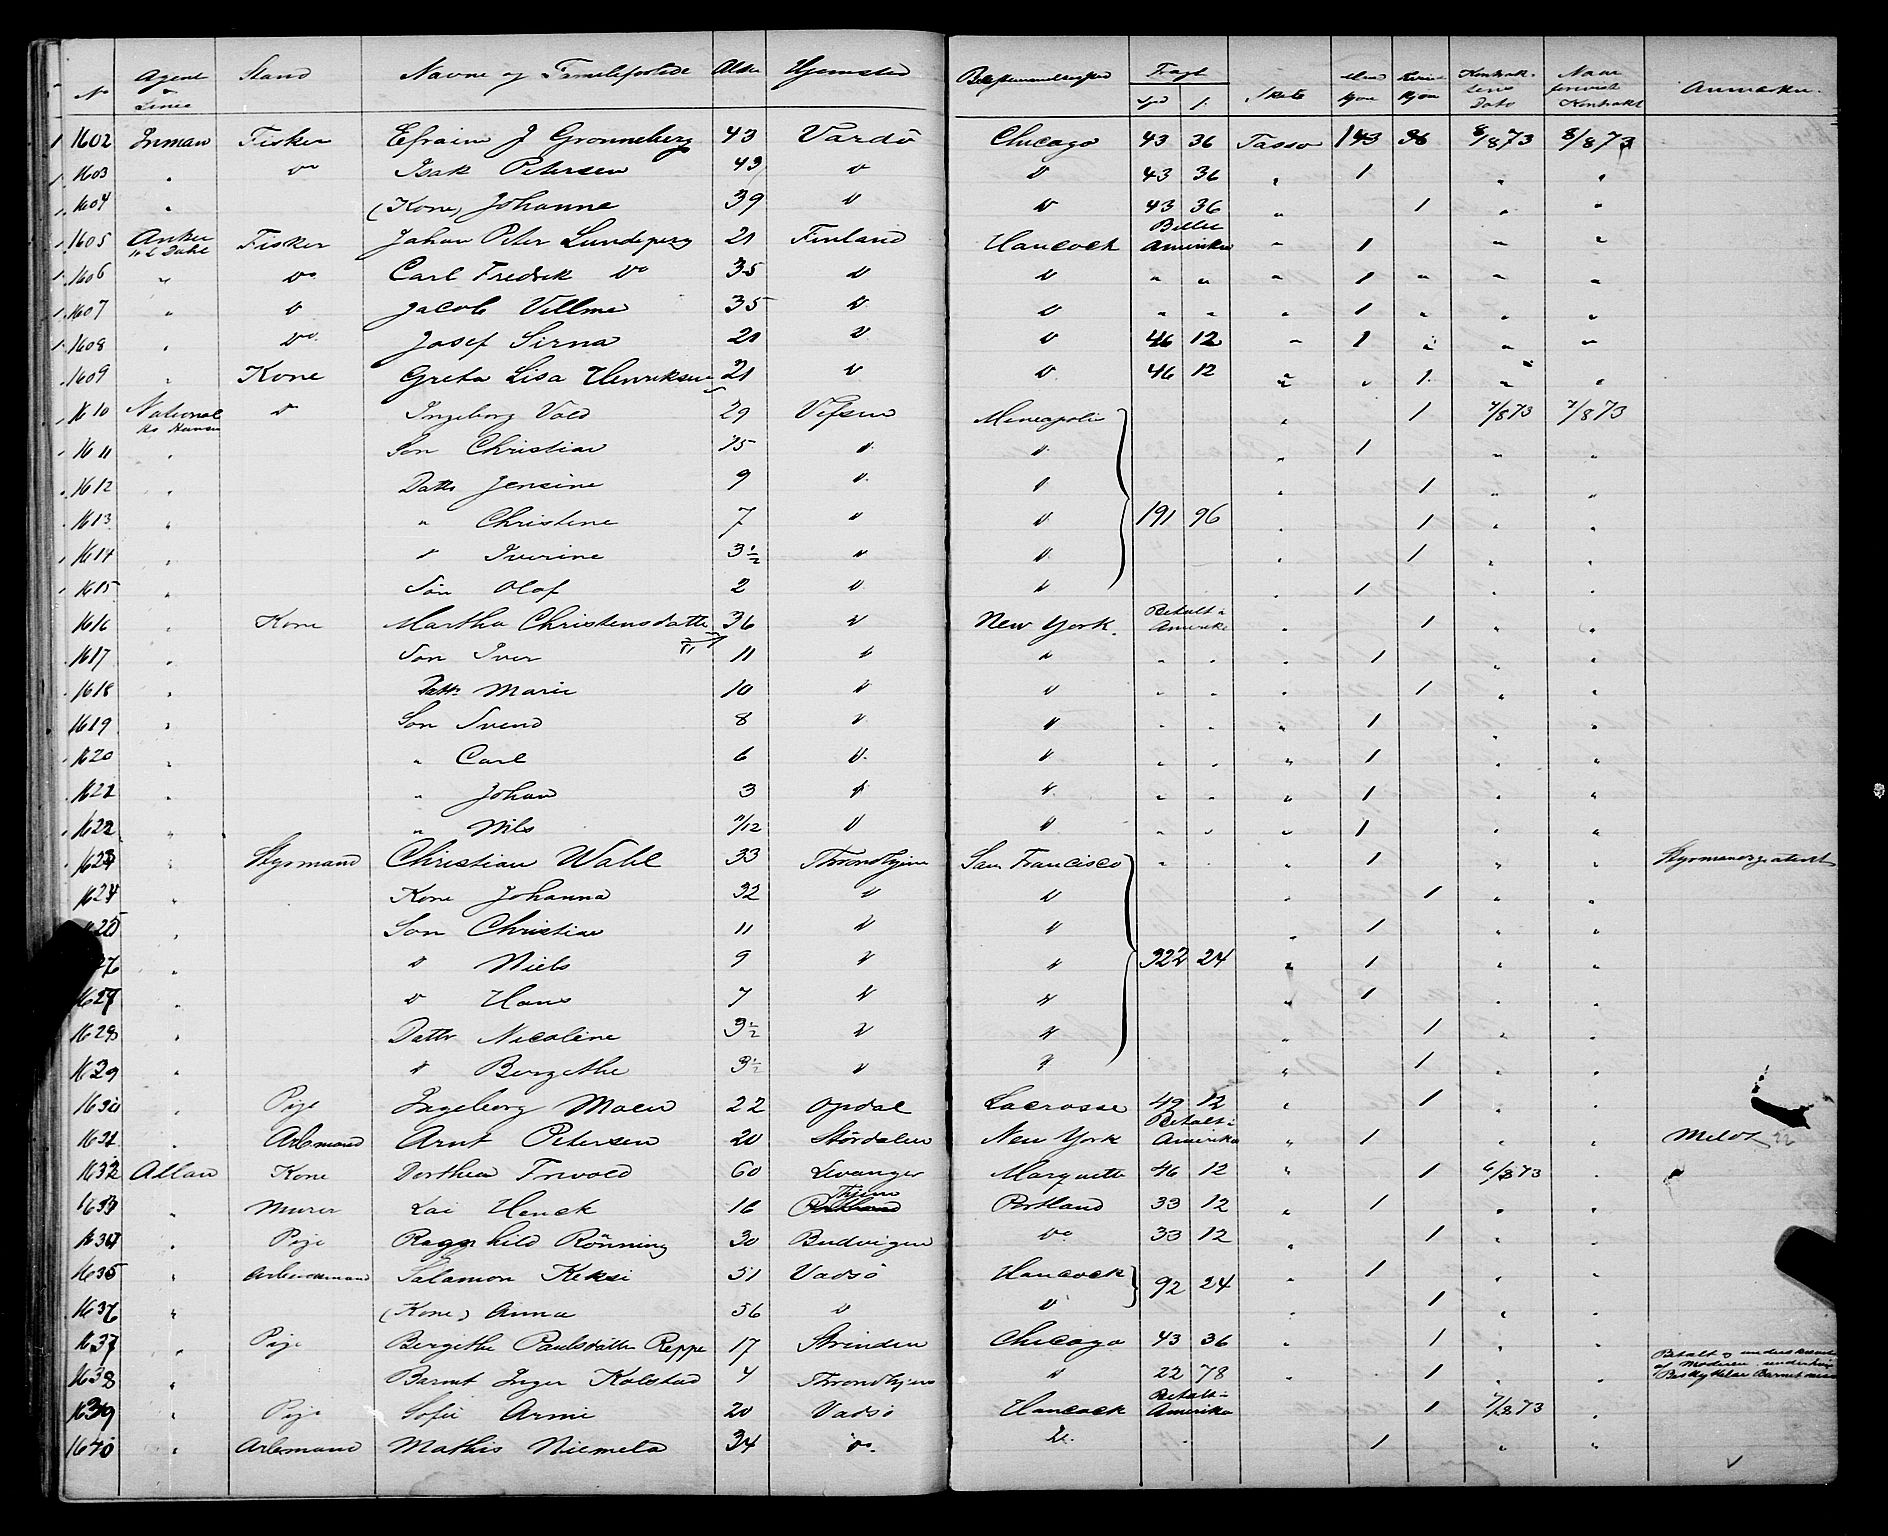 No Agent & Linie Stand Navne og Familieforhold Alder Hjemsted Bestemmelsessted Fragt Spd s. Skib Kjøn Kjøn Kontraktens Dato Naar forevist Kontrakt Anmærkn.
1602 Inman Fisker Efraim J Gronneberg 43 Vardö Chicago 43 36 Tasso 1 43 36 8/8 73 8/8 73
1603 " do Isak Petersen 43 do do 43 36 " 1 " "
1604 " (Kone) Johanne 39 do do 43 36 " 1 " "
1605 Anker Fisker Johan Peter Lundeperg 21 Finland Hancock Billet Amerika " 1 " "
1606 " do Carl Fredrik do 35 do do " " " 1 " " "
1607 " do Jacob Villma 35 do do " " " 1 " " "
1608 " do Josef Sirna 21 do do 46 12 " 1 " " "
1609 " Kone Greta Lisa Henriksen 21 do do 46 12 " " 1 " "
1610 National do Ingeborg Vold 29 Vefsen Mineapolis " 1 7/8 73 7/8 73
1611 " Son Christian 15 do do " 1 " "
1612 " Dattr Jensine 9 do do " 1 " "
1613 " " Christine 7 do do 191 96 " 1 " "
1614 " " Iverine 3½ do do " 1 " "
1615 " Sön Olaf 2 do do " 1 " "
1616 " Kone Martha Christensdatter 36 do New York Betalt i Amerika " 1 " "
1617 " Son Iver 11 do do " " " 1 " "
1618 " Dattr Marie 10 do do " " " 1 " "
1619 " Son Svend 8 do do " " " 1 " "
1620 " " Carl 6 do do " " " 1 " "
1621 " " Johan 3 do do " " " 1 " "
1622 " " Nils /12 do do " " " 1 " "
1623 " Stysmand Christian Wahl 33 Throndhjem San Francisco " " " 1 " "
1624 " Kone Johanna 32 do do 1 " "
1625 " Son Christian 11 do do " 1 " "
26 " do Niels 9 do do 322 24 " 1 " "
1627 " do Hans 7 do do " 1 " "
1628 " Dattr Nicoline 3½ do do " 1 " "
1629 " do Bergithe 3½ do do " 1 " "
1630 " Pige Ingeborg Moen 22 Opdal Lacrosse 49 12 " 1 " "
1631 " Arbmand Arnt Petersen 20 Stördalen New York Betalt i Amerika " 1 " " Meldt
1632 Allan Kone Dorthea Trvold 60 Levanger Marquette 46 12 " 1 6/8 73 "
1633 " Murer Lai Henck 16 Thjem Portland 33 12 " 1 " "
1634 " Pige Ragnhild Rönning 30 Budvigen do 33 12 " 1 " "
1635 " Arbeidsmand Salamon Keksi 51 Vadsö Hancock 92 24 " 1 " "
1636 " (Kone) Anna 56 do do " 1 " "
1637 " Pige Bergithe Paulsdatter Reppe 17 Strinden Chicago 43 36 " 1 " "
1638 " Barnet Inger Kolstad 4 Throndhjem do 22 78 " 1 " " Betalt & underskrevet af Moderen
1639 " Pige Sofie Armi 20 Vadsö Hancock Betalt i Amerika 1 7/8 73 "
1640 " Arbmand Mathis Niemela 34 do do " 1 " "